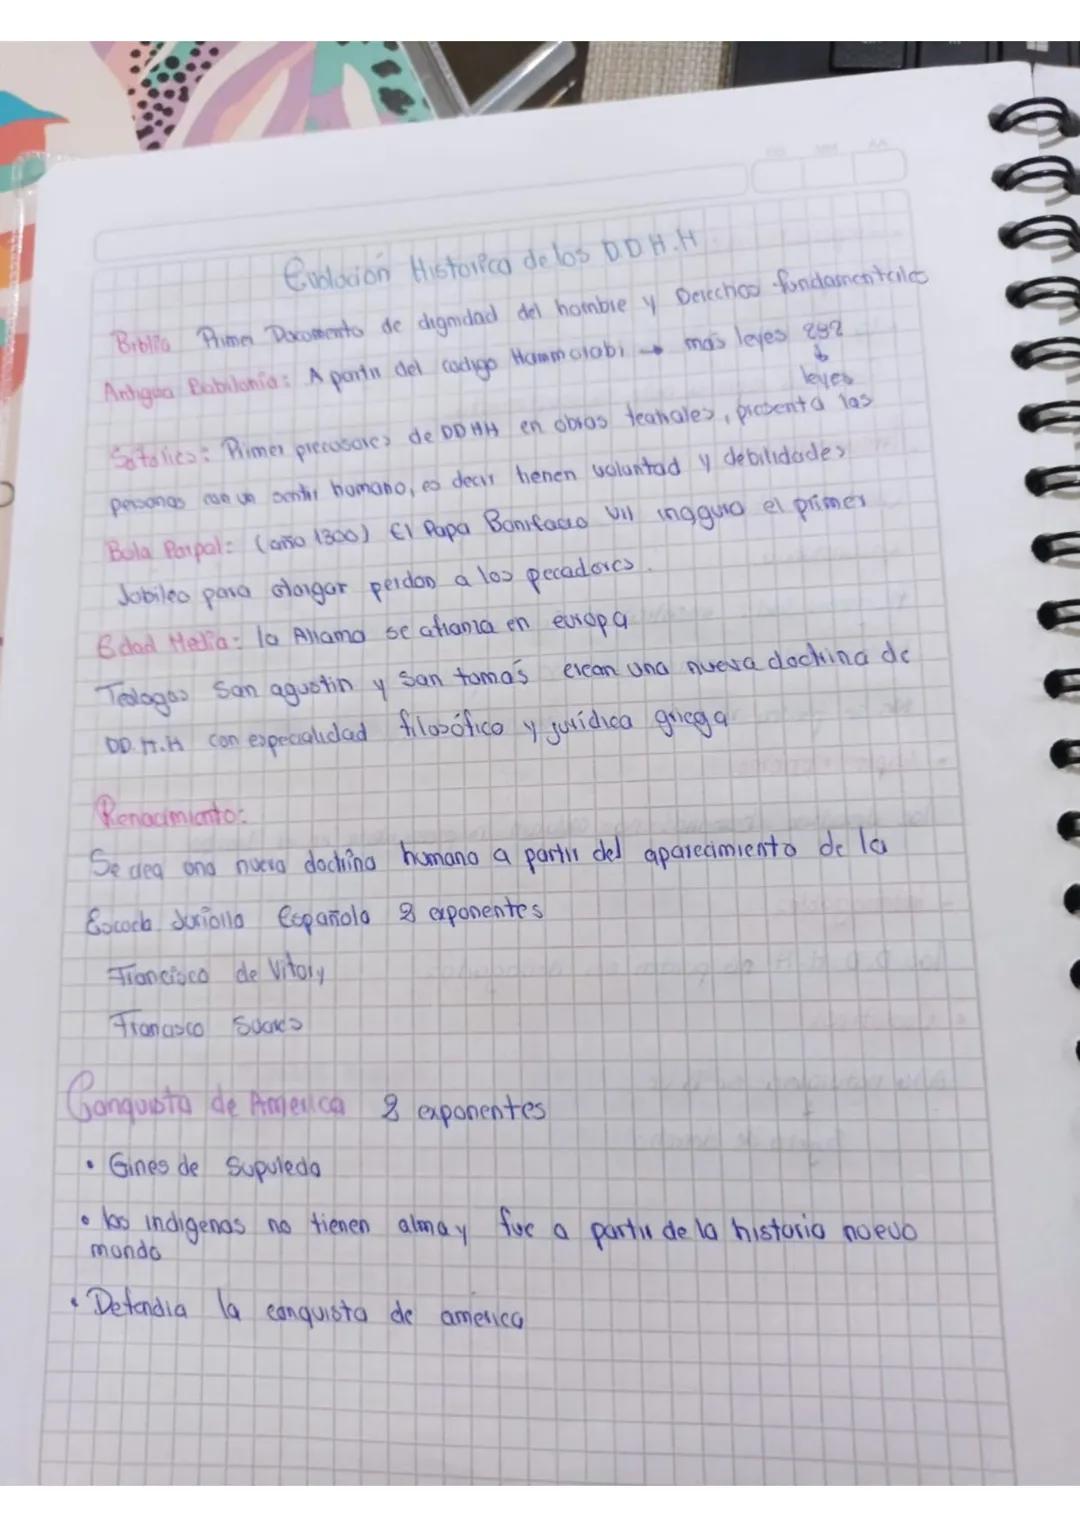 Evolución Historica de los D D H.H
Biblia Primer Documento de dignidad del hombre y Derechos fundamentales
Antigua Babilonia: A partir del codigo Hammorabi → más leyes 282
↓
leyes
Sofolies: Primer precusores de DDHH en obras teatrales, presenta las
personas con un sentir humano, es decir tienen voluntad y debilidades
Bula Parpal: (año 1300) El Papa Bonifacio VII inaguro el primer
Jobileo para otorgar perdon a los pecadores.
Edad Media: la Aliama se afianza en europa
Teologos San agustin y San tomás crean una nueva doctrina de
DD.H.H con especialidad filosófico y jurídica griega
Renacimiento:
Se crea una nueva doctrina humano a partir del aparecimiento de la
Escocla Española 2 exponentes
Francisco de Vitory
Francisco Suares
Conquista de America 2 exponentes
• Gines de Supuleda
• los indigenas no tienen alma y fue a partir de la historia nuevo
mondo
• Defendia la conquista de america